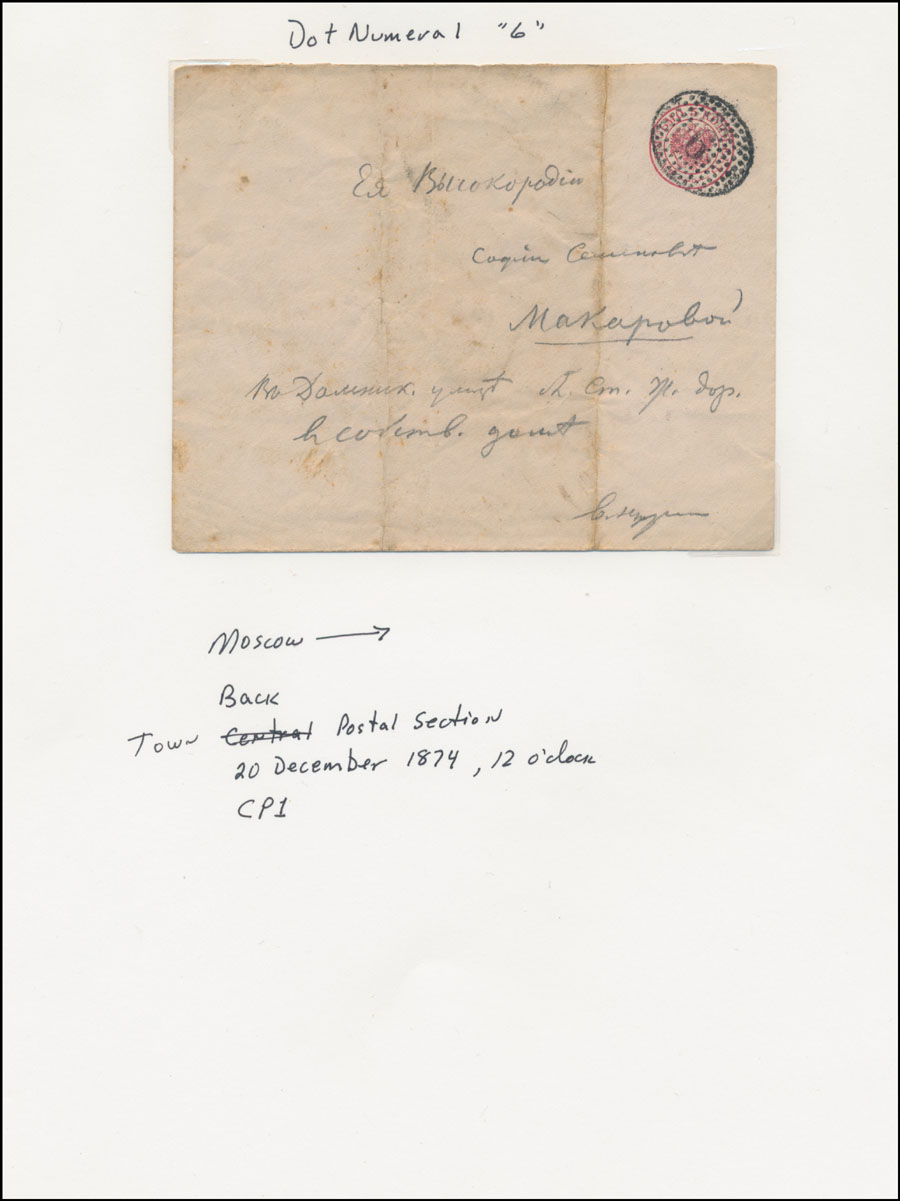 Dot Numeral "6"
Ея Высокородію
Софіи Семеновнѣ
Макаровой
улицѣ Ст. Ж. дор.
в собств. домѣ
Moscow →
Back
Town Central Postal Section
20 December 1874, 12 o'clock
CP1